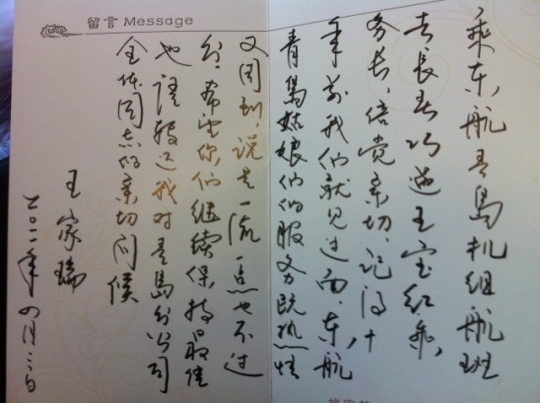 留言 Message
乘东航青岛机组航班
去长春巧遇王宝红乘
务长，倍觉亲切，记得十
年前我们就见过面，东航
青岛姑娘们的服务既热情
又周到，说是一流一点也不过
分，希望你们继续保持最佳
也请转达我对青岛分公司
全体同志的亲切问候
王家瑞
二〇一一年四月三日